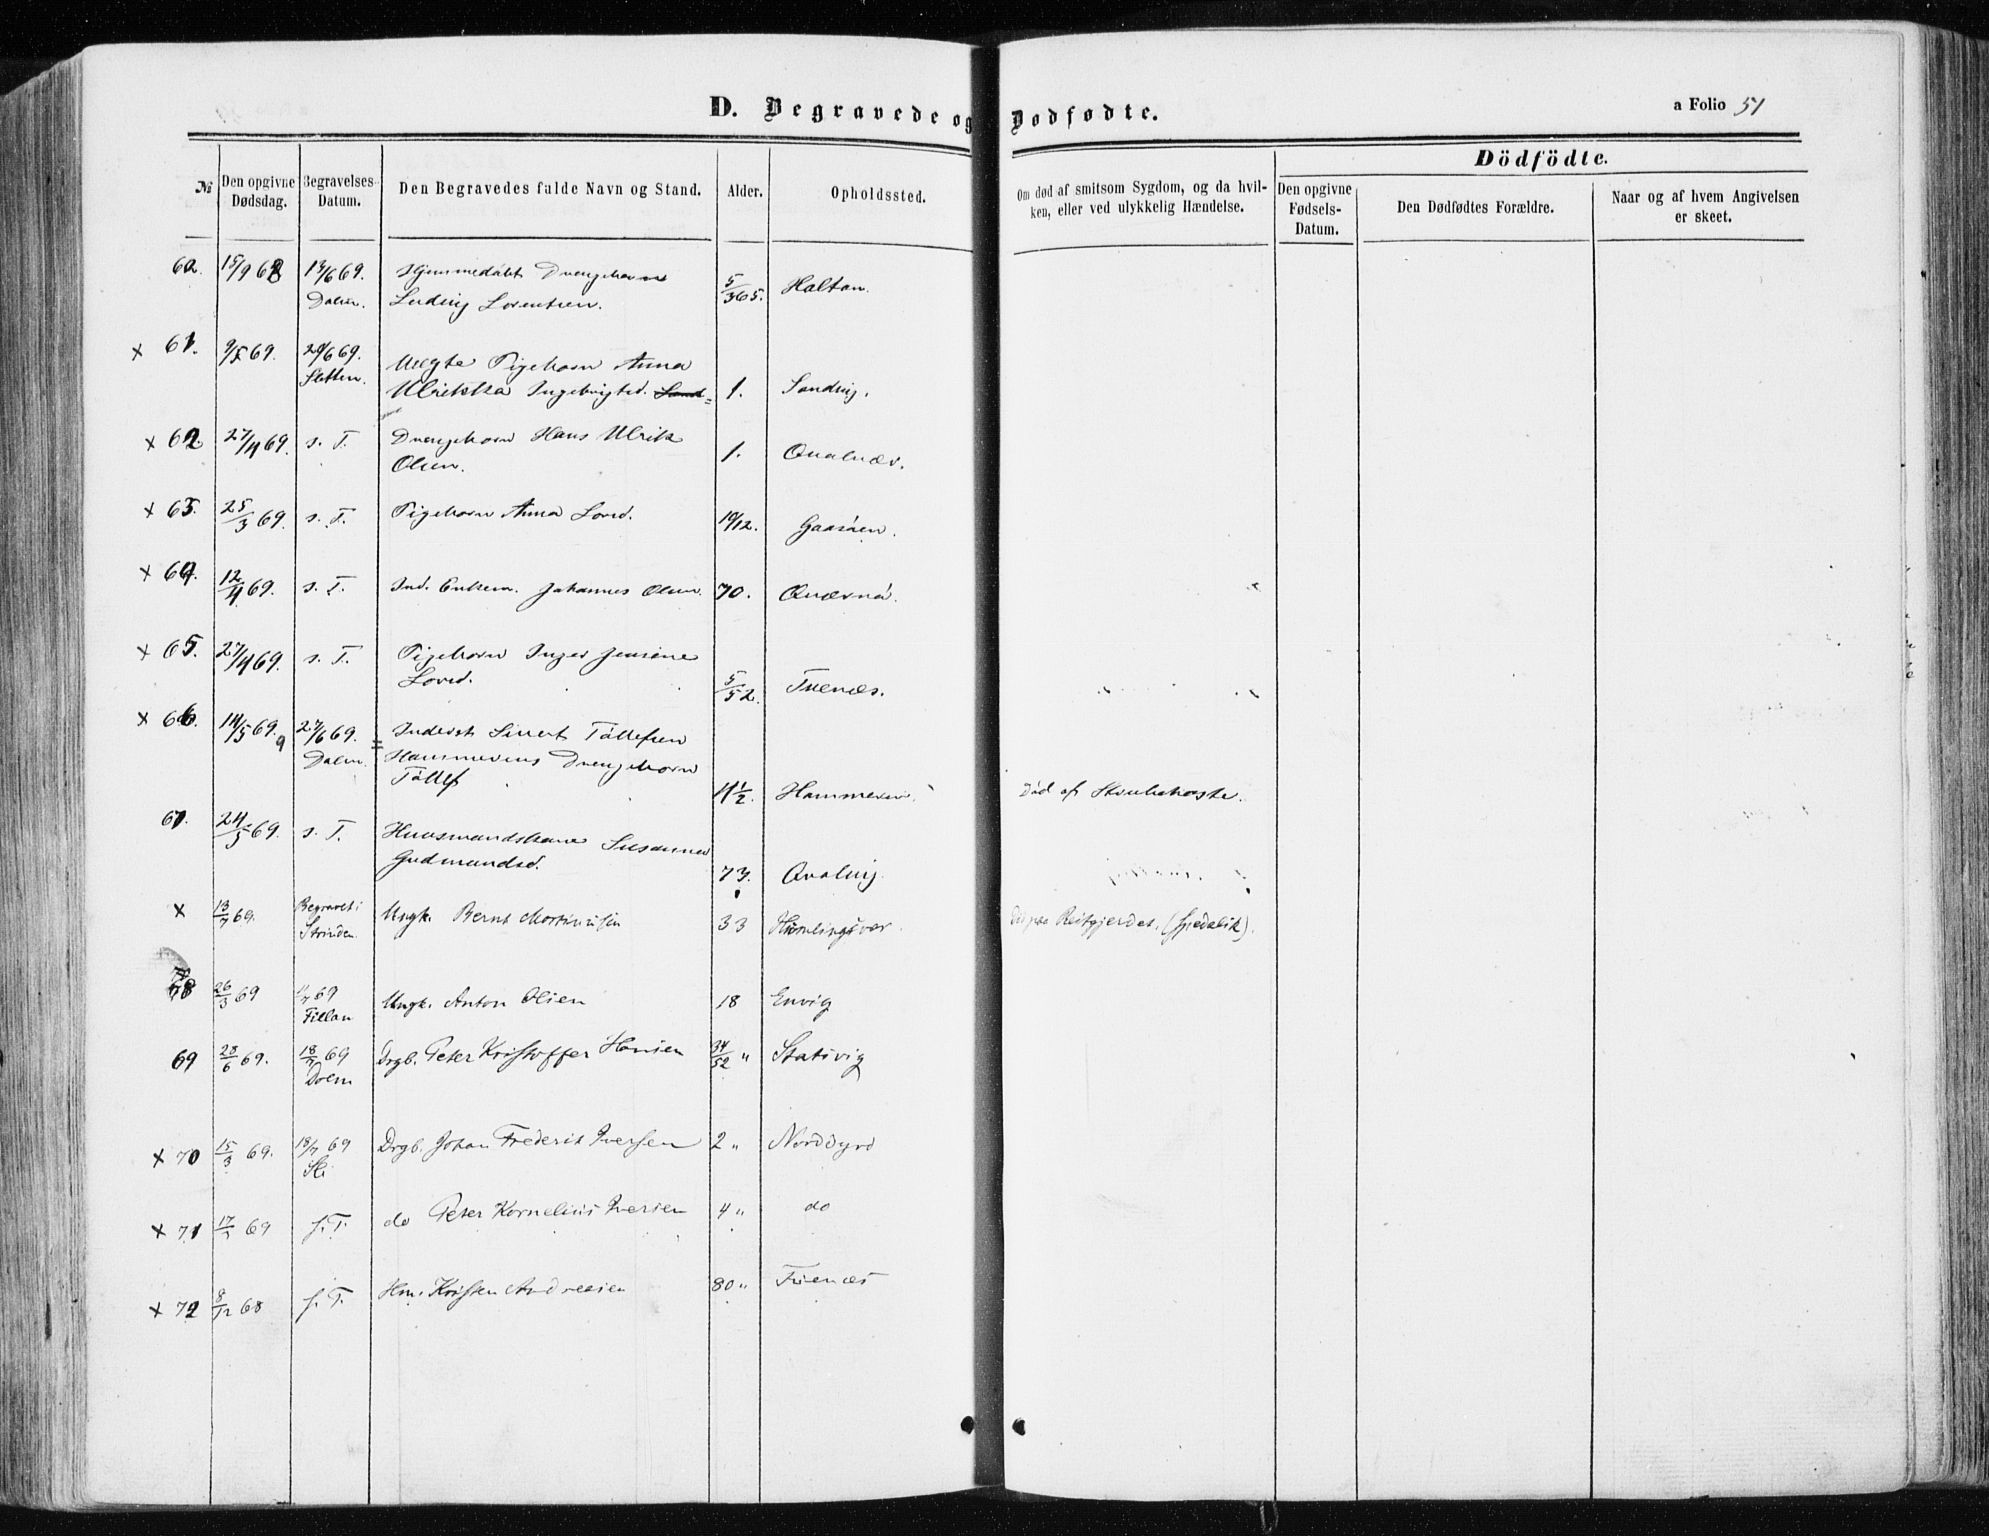 D. Begravede og Dødfødte.
a Folio 51
Dödfödte.
№
Den opgivne Dødsdag.
Begravelses-Datum.
Den Begravedes fulde Navn og Stand.
Alder.
Opholdssted.
Om død af smitsom Sygdom, og da hvil-
ken, eller ved ulykkelig Hændelse.
Den opgivne Fødsels-Datum.
Den Dødfødtes Forældre.
Naar og af hvem Angivelsen
er skeet.
15/9 68 13/6 69. Hjemmedøbt Drengebarn
Ludvig Lorentsen. 5/365. Haltan.
x 61. 69. 69. Pigebarn Anna
Sletten. Ingebrigtsd. 1. Sandvig.
x 62 27/4 69. s. T. Drengebarn Hans Ulrik
Olsen. 1. Qvalnæs.
x 63. 25/3 69. s. T. Pigebarn Anna 10/12. Gaasøen.
x 64. 12/4 69. s. T. Ind. Enkem. Johannes Olsen. 70. Qværnø.
x 65. 27/4 69. s. T. Pigebarn Inger Jensine
5/52. Tuenæs.
x 66. 14/5 69. 27/6 69. Inderst Sivert Tøllefsen
Hammervigs Drengebarn
Tøllef Død af Kikhoste.
24/5 69. s. T. Huusmandskone Susanna
Gudmundsd. 73. Qvalvig.
x 13/7 69. Begravet i
Strinden Ungk. Bernt Martinusen 33 Død paa Reitgjerdet. (Spedalsk).
68 26/3 69 69
Fillan Ungk. Anton Olsen 18 Envig
69 28/6 69. 18/7 69
Dolm Drgb. Peter Kristoffer Hansen 34/52 " Statsvig
x 70 15/3 69. 18/7 69
Sle Drgb. Johan Frederik Iversen 2 " Norddyrø
x 71 69 s. T. do Peter Kornelius Iversen 4 " do
x 72 8/12 68 s. T. Hm. Kristen Andreasen 80 " Tuenæs